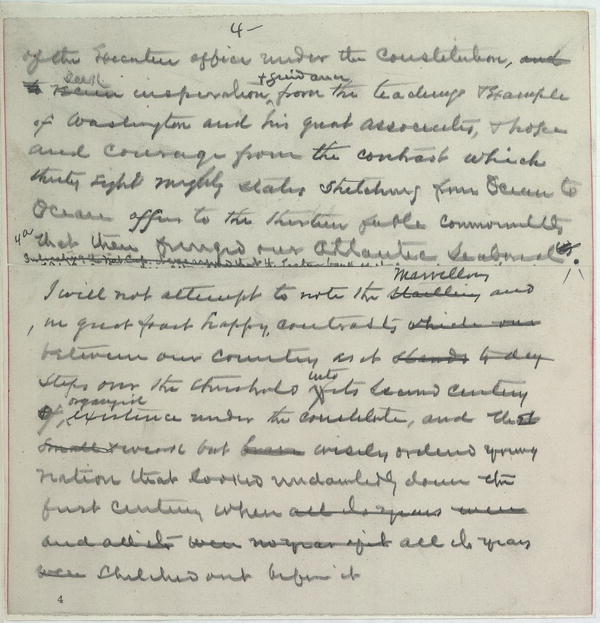 4-
of the Executive office under the Constitution, and
Seek + guidance
inspiration, from the teachings & Example
of Washington and his great associates, & hope
and Courage from the contrast which
thirty Eight mighty states stretching from Ocean to
Ocean offers to the thirteen feeble commonwealths
4a that then fringed our Atlantic Seaboard.
Marvellous
I will not attempt to note the Startling and
in great part happy, contrasts which our
between our Country as it stands to day
steps over the threshold into its Second century
organized
of existence under the Constitution, and that
small & weak but brave wisely ordered young
nation that looked undauntedly down the
first Century when all its years were
and all its were no year of it all its years
were stretched out before it
4